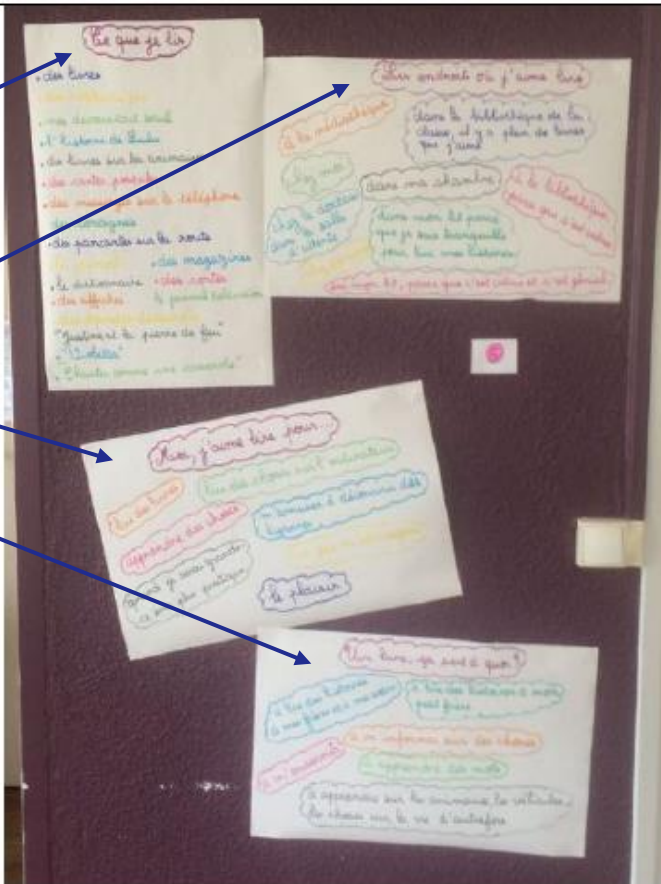 Ce que je lis
. des livres
. mes devoirs tout seul
. l'histoire de
. des livres sur les animaux
. des cartes postales
. des messages sur le téléphone
. des pancartes sur la route
. des magazines
. le dictionnaire
. des cartes
. des affiches
"Justine et la pierre de feu"
. "Violetta"
. "Chante comme une casserole"
Les endroits où j'aime lire
à la médiathèque
dans la bibliothèque de la
classe, il y a plein de livres
que j'aime
chez moi
dans ma chambre
à la bibliothèque
parce que c'est calme
chez le docteur
dans la salle
d'attente
dans mon lit parce
que je suis tranquille
pour lire mes histoires
dans mon lit, parce que c'est calme et c'est génial.
Moi, j'aime lire pour...
lire des livres
lire des choses sur l'ordinateur
apprendre des choses
m'amuser à découvrir des
quand je serai grande
ce plus pratique
le plaisir
Un livre, ça sert à quoi ?
à lire des histoires
à mon frère et à ma sœur
à lire des histoires à mon
petit frère
à m'informer sur des choses
à m'endormir
à apprendre des mots
à apprendre sur les animaux, les véhicules,
les choses sur la vie d'autrefois